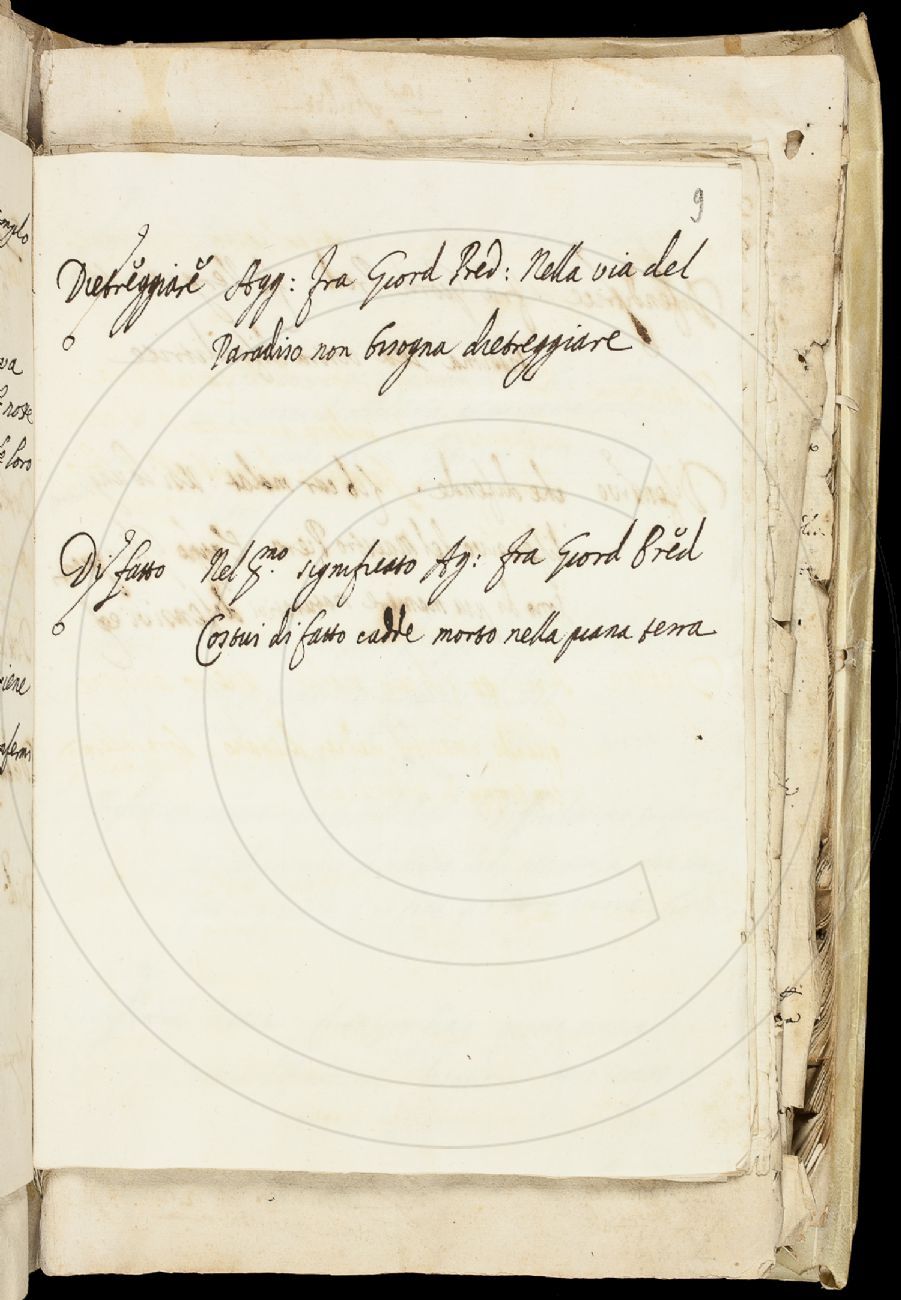 9
Dietreggiare Agg: fra Giord Pred: Nella via del
Paradiso non bisogna dietreggiare
Di fatto Nel significato Ag: fra Giord Pred
Costui di fatto cadde morto nella piana terra